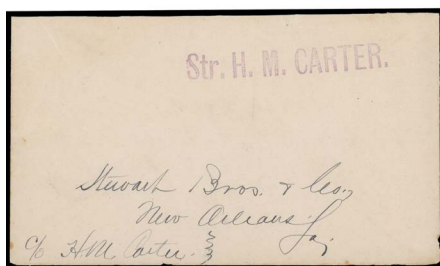 Str. H. M. CARTER.
Stewart Bros. & Co.,
New Orleans
La;
c/o H.M. Carter.